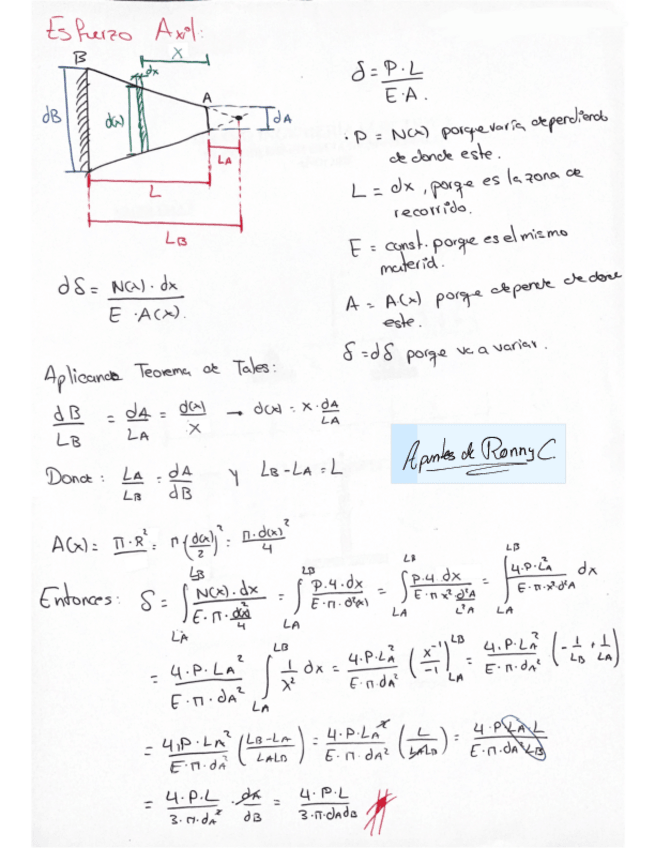 Esfuerzo Axil:
B
dx
X
dB
d(x)
A
dA
LA
L
LB
δ = P·L / E·A.
· P = N(x) porque varía dependiendo
de donde este.
L = dx, porque es la zona de
recorrido.
E = const. porque es el mismo
material.
A = A(x) porque depende de donde
este.
δ = dδ porque va a variar.
dδ = N(x)·dx / E·A(x).
Aplicando Teorema de Tales:
dB/LB = dA/LA = d(x)/X → d(x) = X·dA/LA
Apuntes de Ronny C.
Donde: LA/LB = dA/dB y LB-LA = L
A(x) = π·R² = π(d(x)/2)² = π·d(x)²/4
Entonces: δ = ∫_LA^LB N(x)·dx / E·π·d(x)²/4 = ∫_LA^LB P·4·dx / E·π·d²(x) = ∫_LA^LB P·4 dx / E·π x²·d²A/L²A = ∫_LA^LB 4·P·LA² / E·π·x²d²A dx
= 4·P·LA² / E·π·dA² ∫_LA^LB 1/x² dx = 4·P·LA² / E·π·dA² (x⁻¹/-1)_LA^LB = 4·P·LA² / E·π·dA² (-1/LB + 1/LA)
= 4·P·LA² / E·π·dA² (LB-LA / LALB) = 4·P·LA² / E·π·dA² (L / LALB) = 4·P LA·L / E·π·dA² LB
= 4·P·L / 3·π·dA² · dA/dB = 4·P·L / 3·π·dAdB